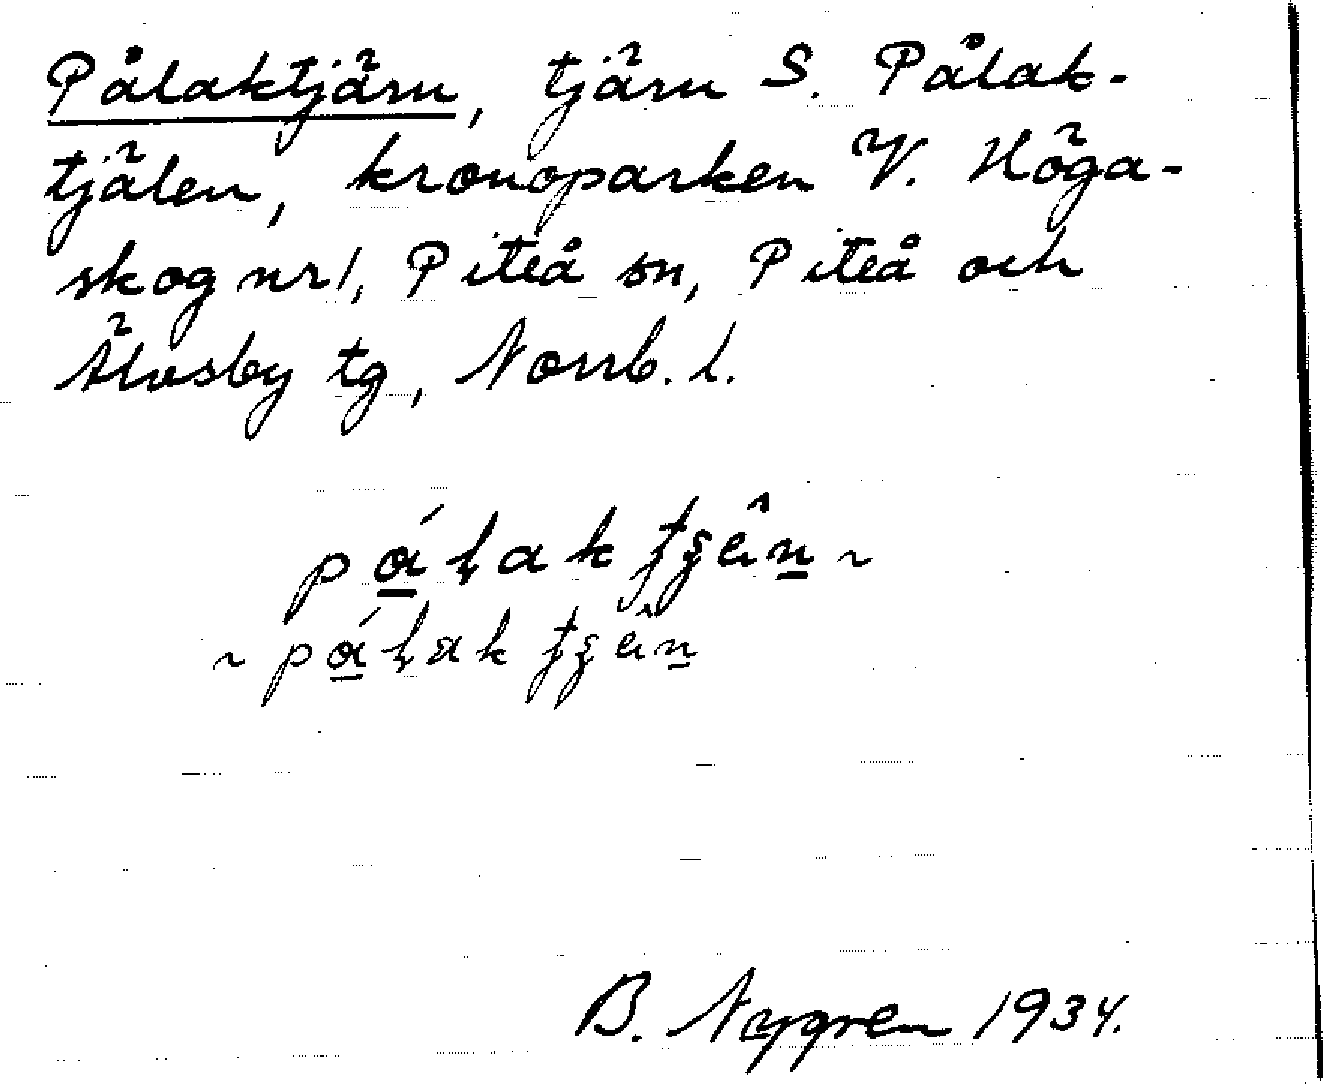 Pålaktjärn, tjärn S. Pålak-
tjälen, kronoparken V. Höga-
skog nr 1, Piteå sn, Piteå och
Älvsby tg, Norrb. l.
B. Nygren 1934.